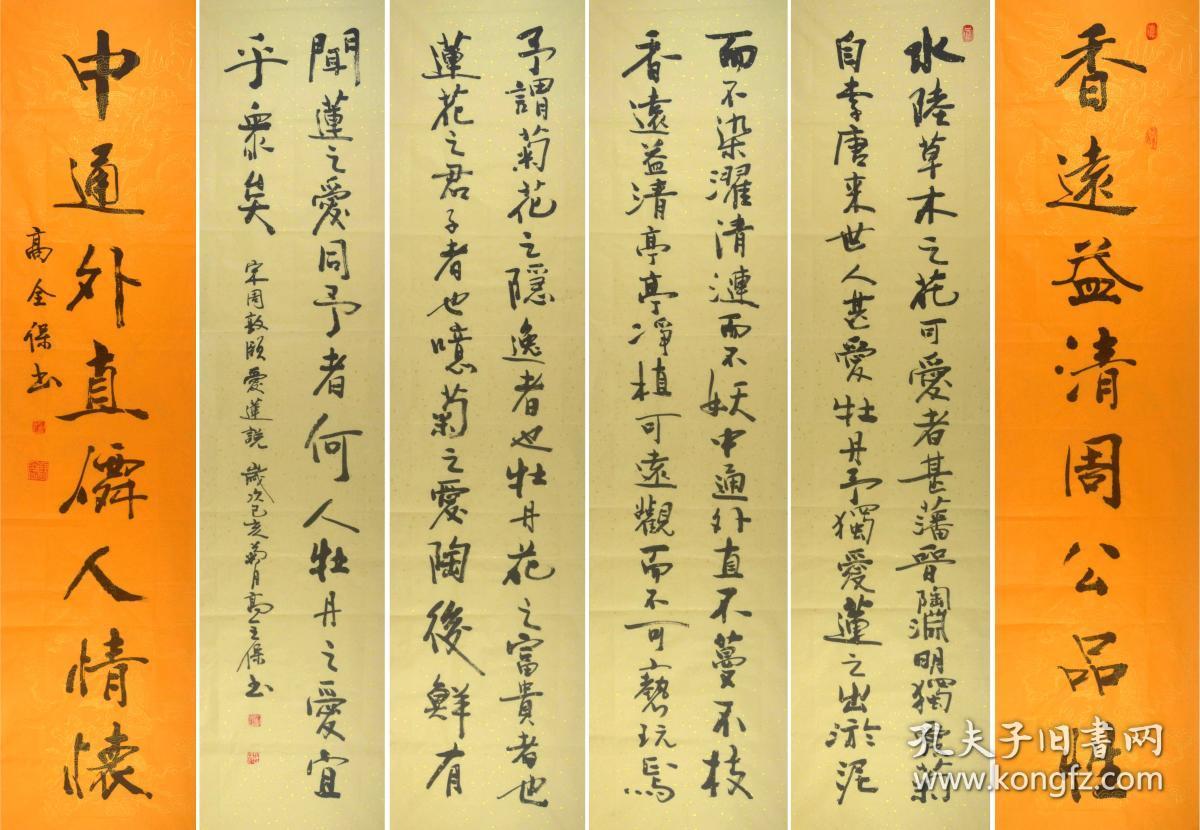 香遠益清周公品性
水陸草木之花可愛者甚蕃晉陶淵明獨愛菊
自李唐来世人甚愛牡丹予獨愛蓮之出淤泥
而不染濯清漣而不妖中通外直不蔓不枝
香遠益清亭亭淨植可遠觀而不可褻玩焉
予謂菊花之隱逸者也牡丹花之富貴者也
蓮花之君子者也噫菊之愛陶後鮮有
聞蓮之愛同予者何人牡丹之愛宜
乎眾矣
宋周敦頤愛蓮說 歲次己亥菊月高全保书
中通外直儒人情懷
高全保书
孔夫子旧书网
www.kongfz.com